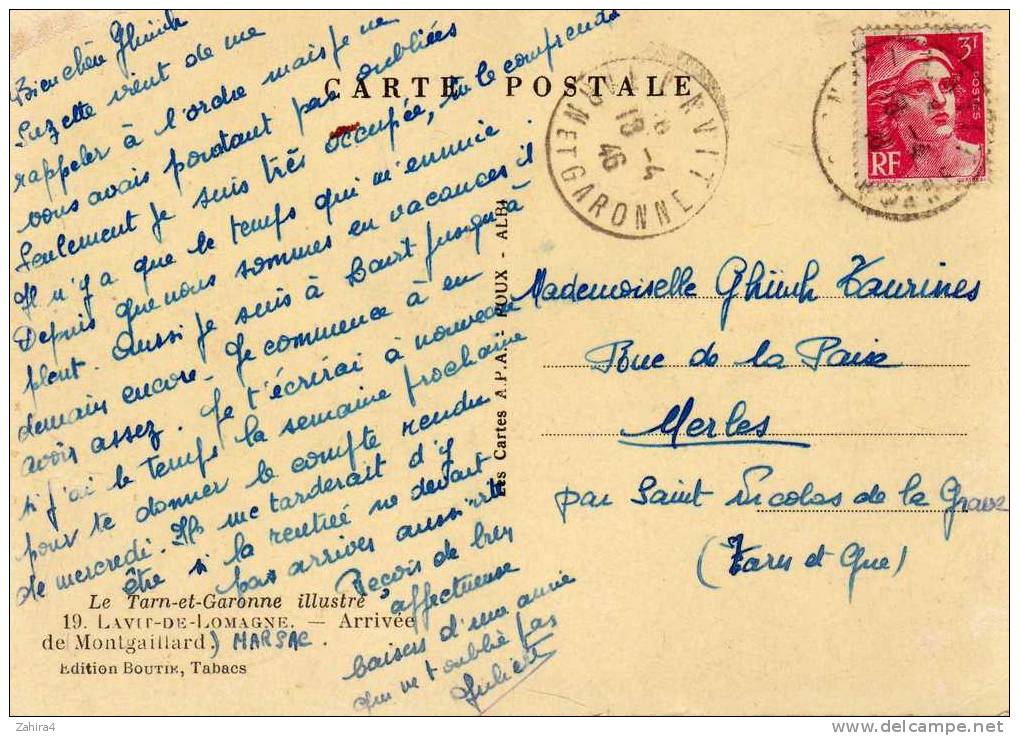 Bien chère Ghünh
Suzette vient de me
rappeler à l'ordre mais je ne
vous avais pourtant pas oubliées
Seulement je suis très occupée, tu le comprends
Il n'y a que le temps qui m'ennuie.
Depuis que nous sommes en vacances il
pleut. Aussi je suis à Lavit jusqu'à
demain encore. Je commence à en
avoir assez. Je t'écrirai à nouveau
si j'ai le temps la semaine prochaine
pour te donner le compte rendu
de mercredi. Il me tarderait d'y
être si la rentrée ne devait
pas arriver aussi vite
Reçois de bien
affectueuse
baisers d'une amie
qui ne t'oublie pas
Juliette
Le Tarn-et-Garonne illustré
19. LAVIT-DE-LOMAGNE. — Arrivée
de (Montgaillard) MARSAC.
Edition BOUTIN, Tabacs
CARTE POSTALE
Les Cartes A.P.A. - POUX - ALBI
LAVIT
18 -4
46
TARN ET GARONNE
3f
POSTES
RF
Mademoiselle Ghünh Taurines
Rue de la Paix
Merles
par Saint Nicolas de la Grave
(Tarn et Gne)
Zahira4
www.delcampe.net